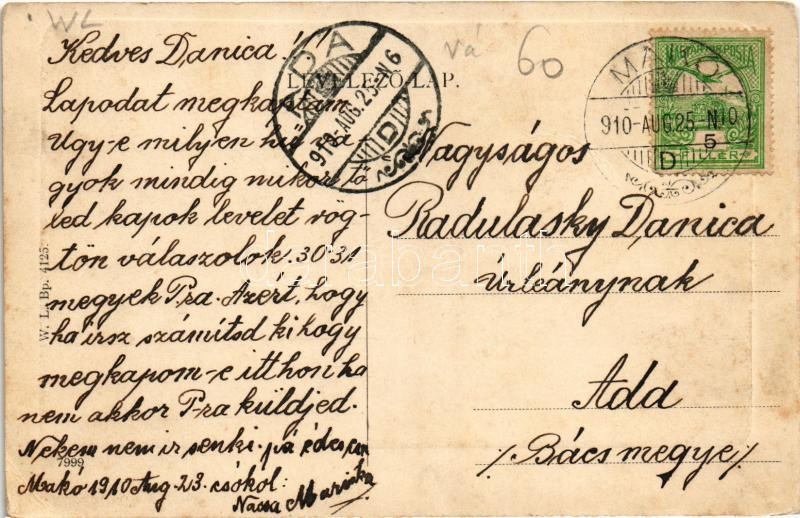 WL
Kedves Danica!
Lapodat megkaptam
Ugy-e milyen hű
gyok mindig mikor tő
led kapok levelet rög-
tön válaszolok. 30-31
megyek P-ra. Azért, hogy
ha irsz számítsd ki hogy
megkapom-e itthon ha
nem akkor P-ra küldjed.
Nekem nem ir senki. pá édes
Makó 1910 Aug. 23. csókol:
Marinka
7999
W. L. Bp. 4125.
LEVELEZŐ-LAP.
ADA
910-AUG.25-N6
D
Vá
60
MAKÓ
910-AUG25-N10
D
MAGYAR POSTA
5
FILLÉR
Nagyságos
Radulasky Danica
Úrleánynak
Ada
/Bács megye/
darabanth